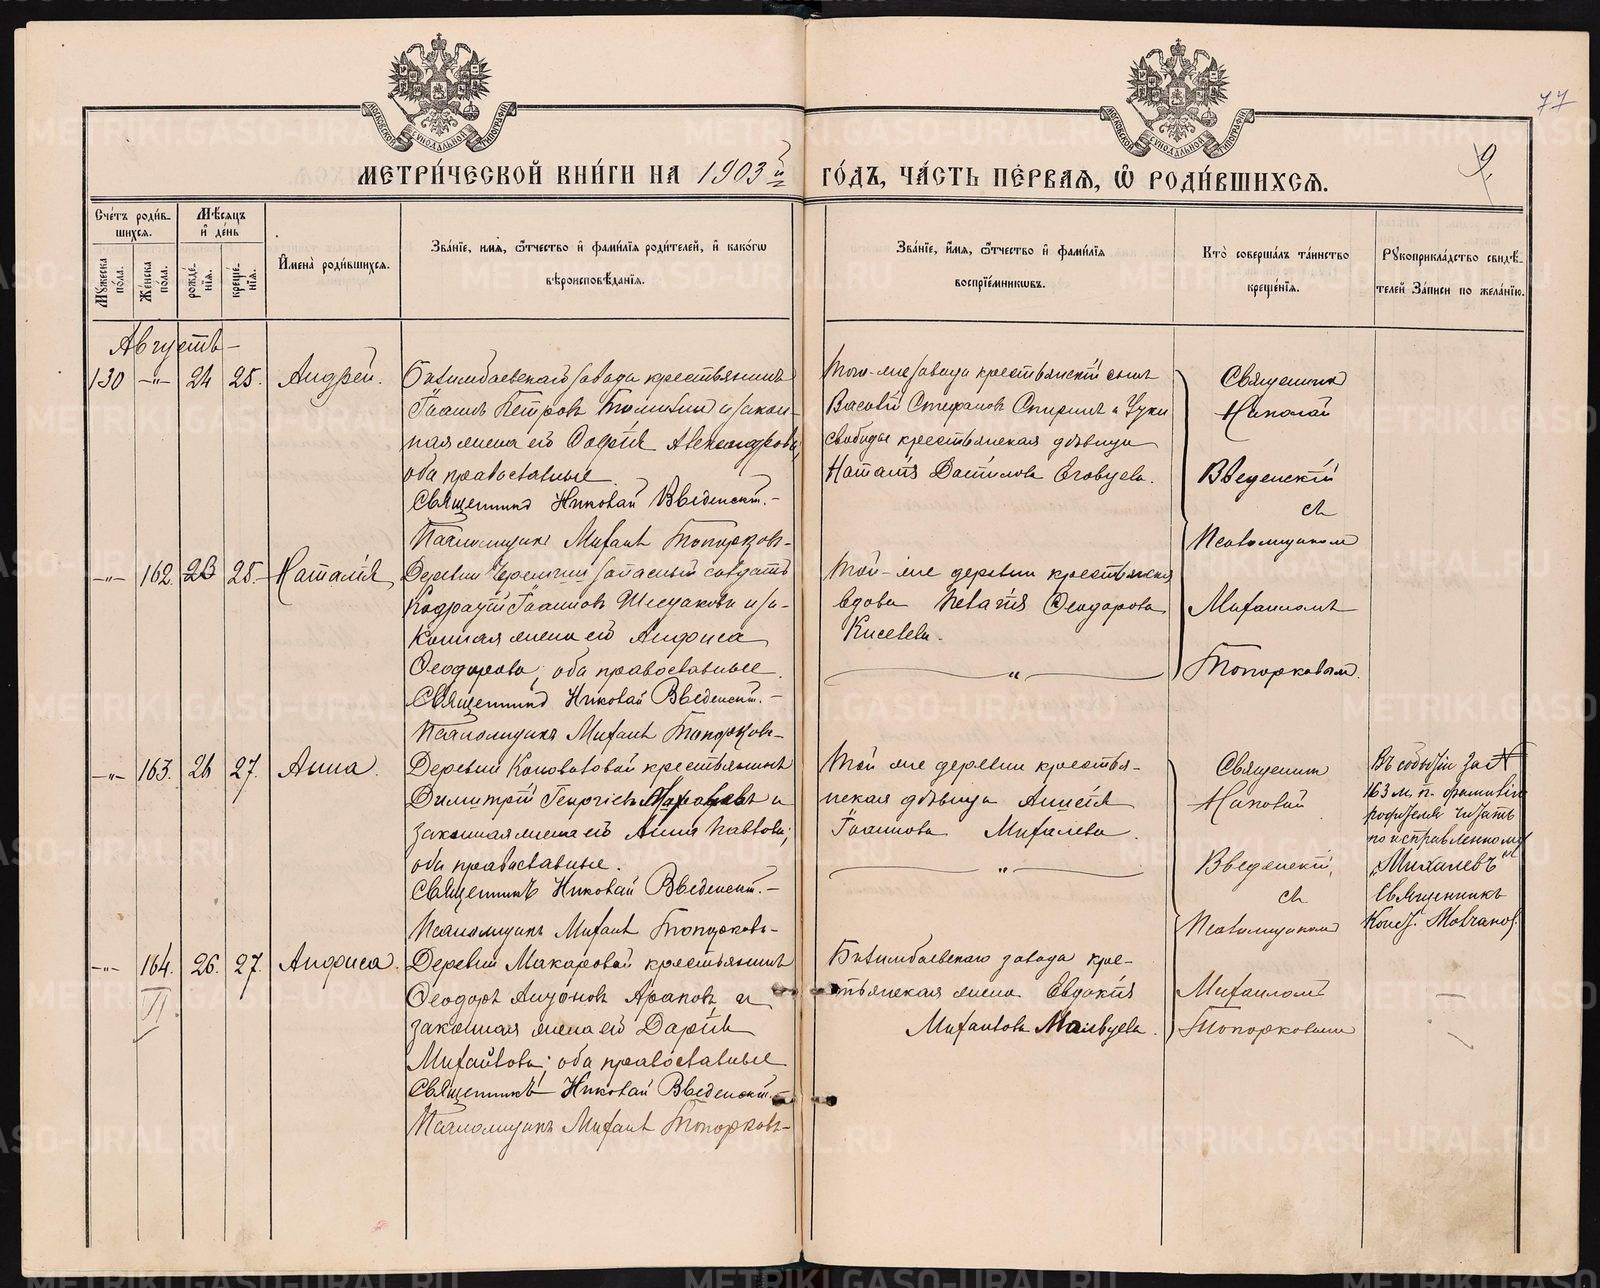 77
9.
МЕТРИ́ЧЕСКОЙ КНИ́ГИ НА 1903 й ГО́ДЪ, ЧА́СТЬ ПЕ́РВАЯ, Ѿ РОДИ́ВШИХСЯ.
МОСКОВСКОЙ СѴНОДАЛЬНОЙ ТИПОГРАФІИ
МОСКОВСКОЙ СѴНОДАЛЬНОЙ ТИПОГРАФІИ
Сче́тъ роди́вшихся.
Мꙋ́жеска по́ла.
Же́нска по́ла.
Мѣ́сяцъ и҆ де́нь
рожде́нїя.
креще́нїя.
И҆мена̀ роди́вшихся.
Зва́нїе, и҆мя, ѻ҆́тчество и҆ фами́лїя роди́телей, и҆ како́гѡ вѣроисповѣ́данїя.
Зва́нїе, и҆́мя, ѻ҆́тчество и҆ фами́лїя воспрїе́мникѡвъ.
Кто̀ соверша́лъ та́инство креще́нїя.
Рꙋкоприкла́дство свидѣ́телей за́писи по жела́нїю.
Августъ
130 -"- 24 25. Андрей.
Билимбаевскаго завода крестьянинъ
Іоаннъ Петровъ и закон-
ная жена его Софія Александрова,
оба православные.
Священникъ Николай Введенскій.
Псаломщикъ Михаилъ Топорковъ
Того-же завода крестьянскій сынъ
Василій Стефановъ Спиринъ и
слободы крестьянская дѣвица
Наталія Даніилова
Священник
Николай
Введенскій
съ
Псаломщиком
Михаиломъ
Топорковым.
-"- 162. 23 25. Наталія
Деревни запасный солдатъ
Іоанновъ и за-
конная жена его Анфиса
Ѳеодорова, оба православные.
Священникъ Николай Введенскій.
Псаломщикъ Михаилъ Топорковъ
Той-же деревни крестьянская
вдова Пелагія Ѳеодорова
Киселева.
"
-"- 163. 26 27. Анна.
Деревни Коноваловой крестьянинъ
Димитрій Георгіевъ и
законная жена его Анна Павлова;
оба православные.
Священникъ Николай Введенскій.
Псаломщикъ Михаилъ Топорковъ
Той же деревни крестья-
нская дѣвица
Іоаннова Михалева.
"
Священник
Николай
Введенскій,
съ
Псаломщиком
Михаиломъ
Топорковымъ
за №
163 м. п. фамилію
родителя читать
по исправленному
„Михалевъ“
Священникъ
-"- 164. 26. 27. Анфиса.
VI
Деревни Макаровой крестьянинъ
Ѳеодоръ Араповъ и
законная жена его Дарія
Михайлова; оба православные
Священникъ Николай Введенскій.
Псаломщикъ Михаилъ Топорковъ
Билимбаевскаго завода кре-
стьянская жена Евдокія
Михаилова
METRIKI.GASO-URAL.RU